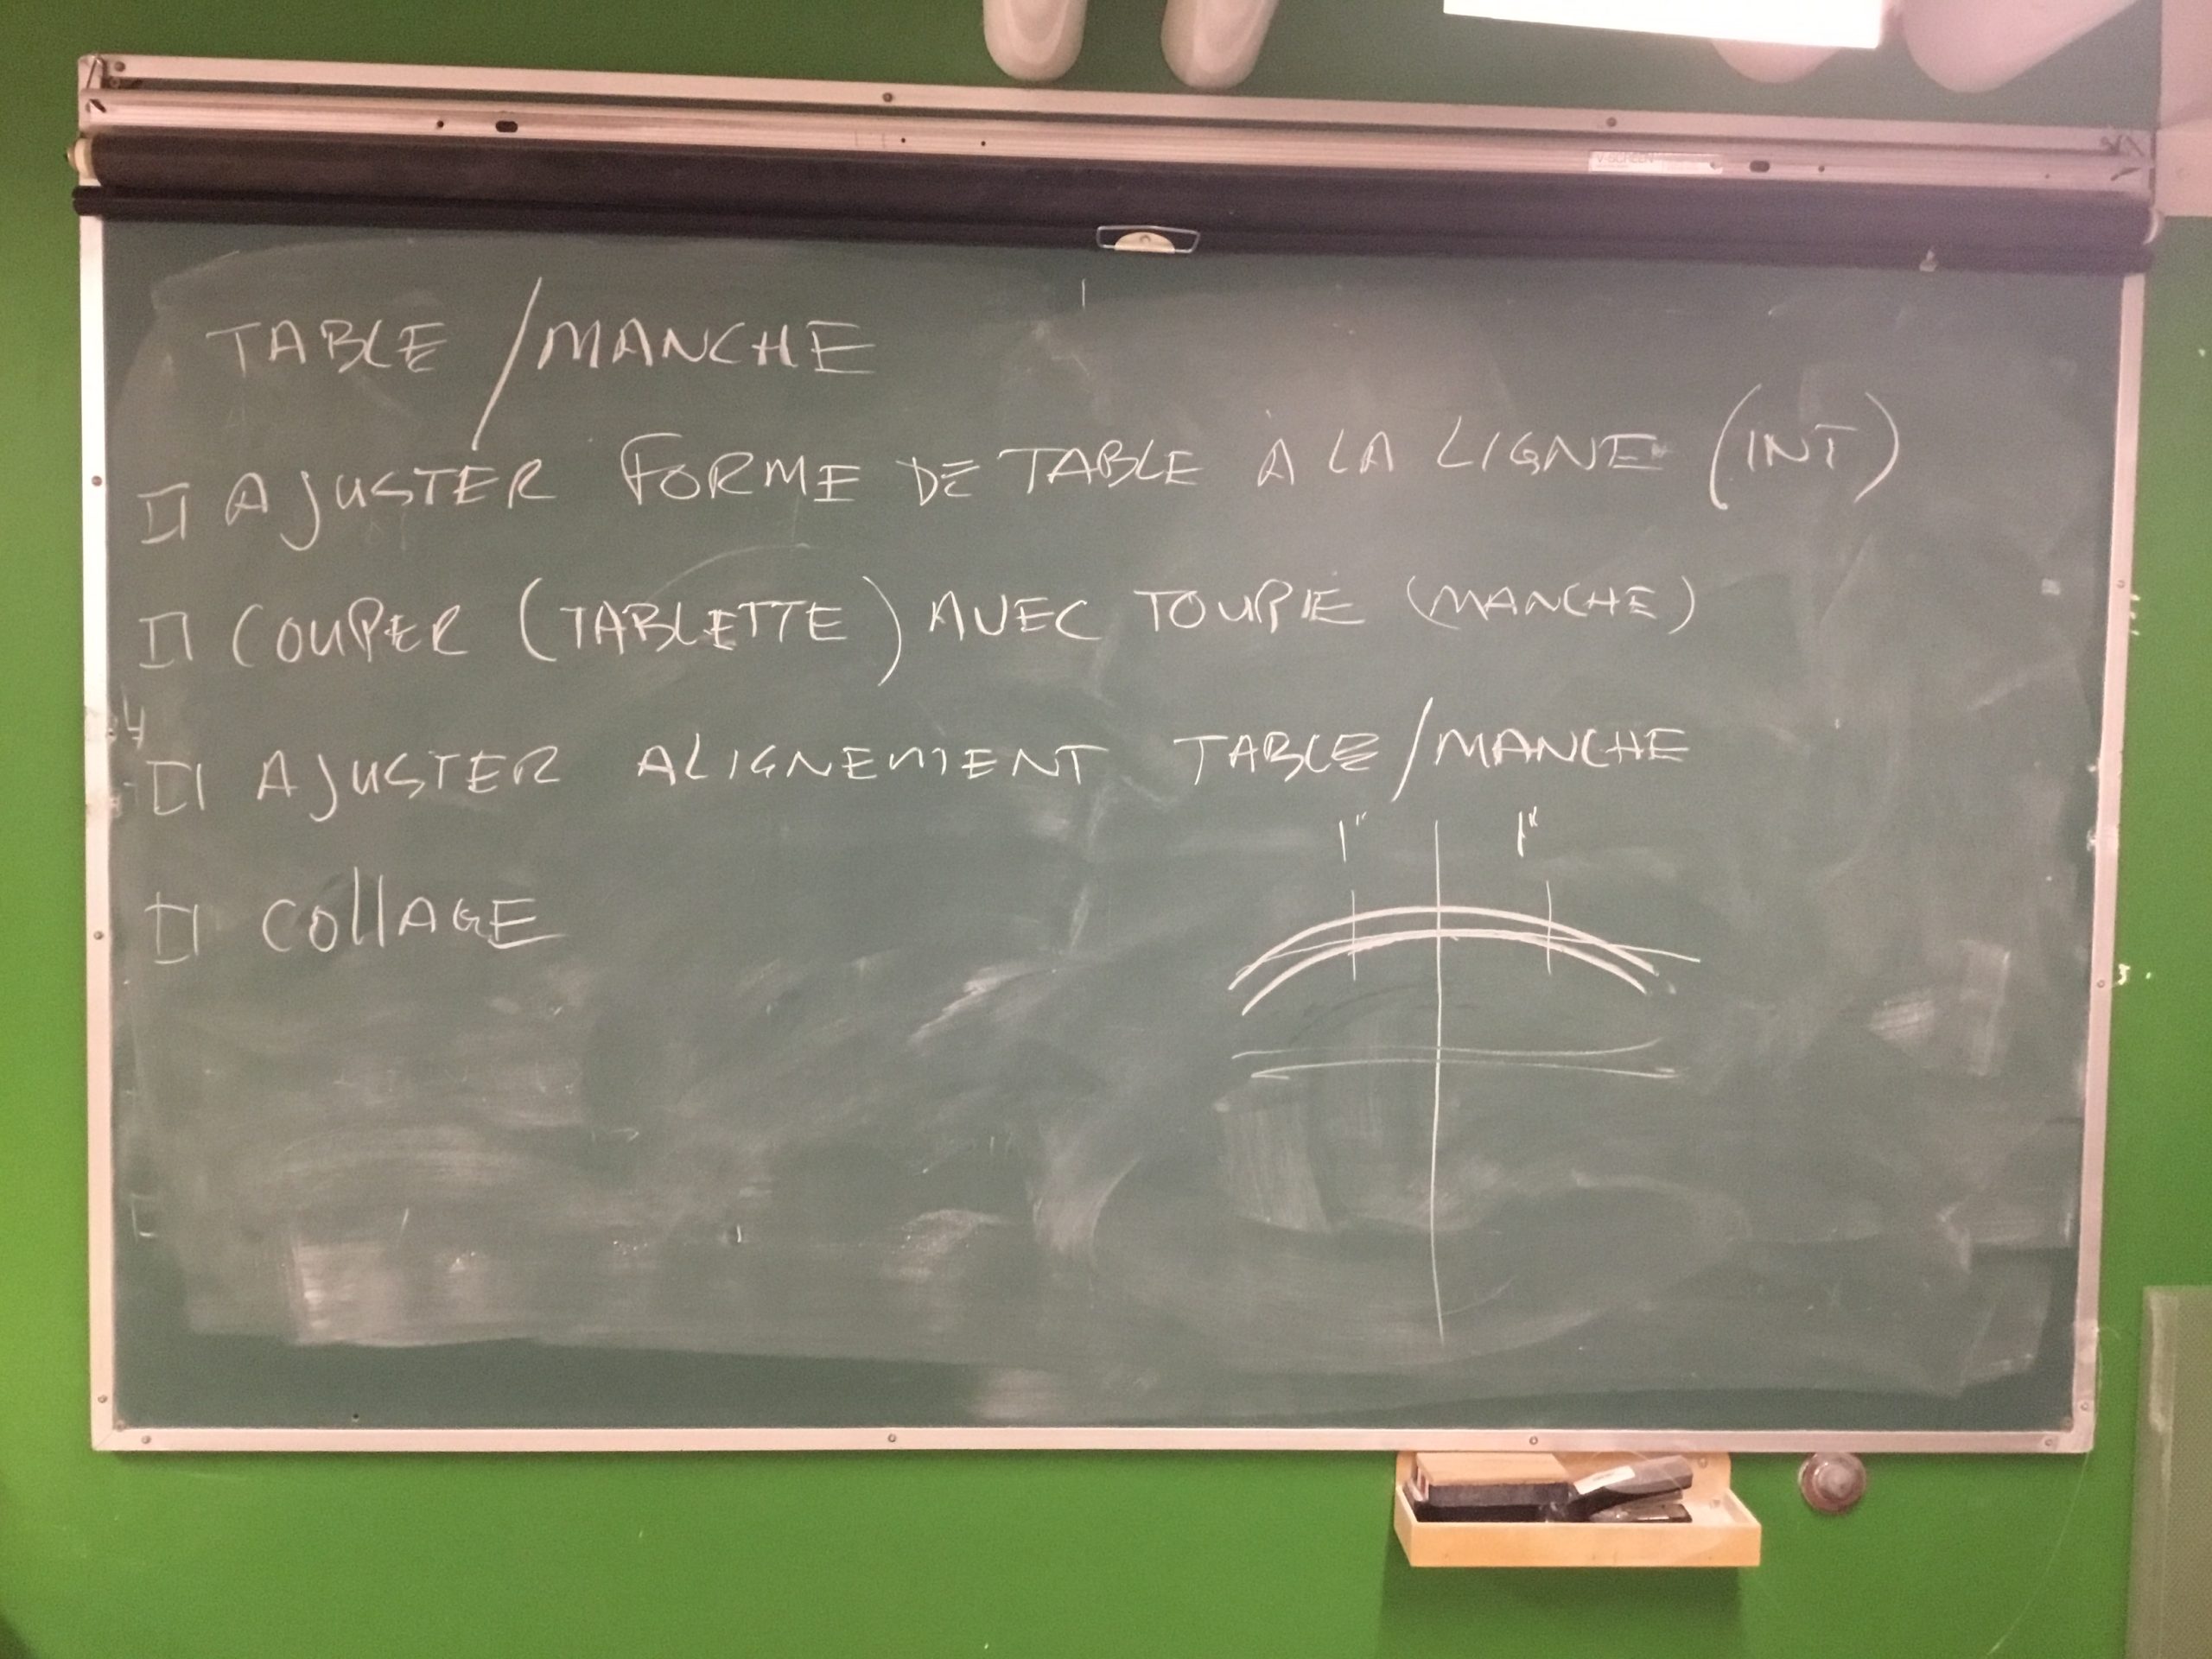 TABLE / MANCHE
AJUSTER FORME DE TABLE À LA LIGNE (INT)
COUPER (TABLETTE) AVEC TOUPIE (MANCHE)
AJUSTER ALIGNEMENT TABLE / MANCHE
1" 1"
COLLAGE